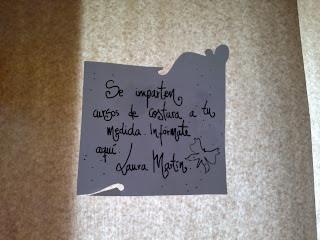 Se imparten
cursos de costura a tu
medida. Infórmate
aquí.
Laura Martín.